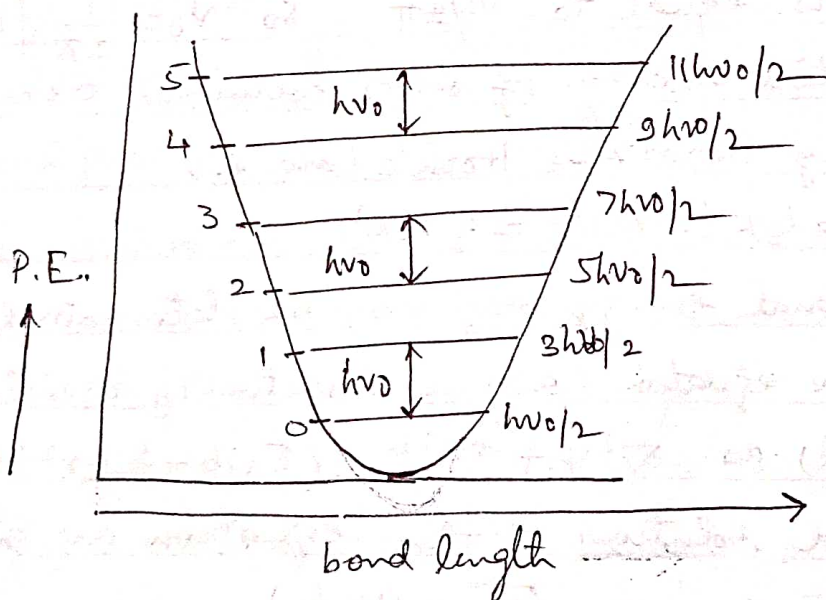 5 11hν0/2
hν0
4 9hν0/2
3 7hν0/2
P.E. hν0
2 5hν0/2
1 3hν0/2
hν0
0 hν0/2
bond length